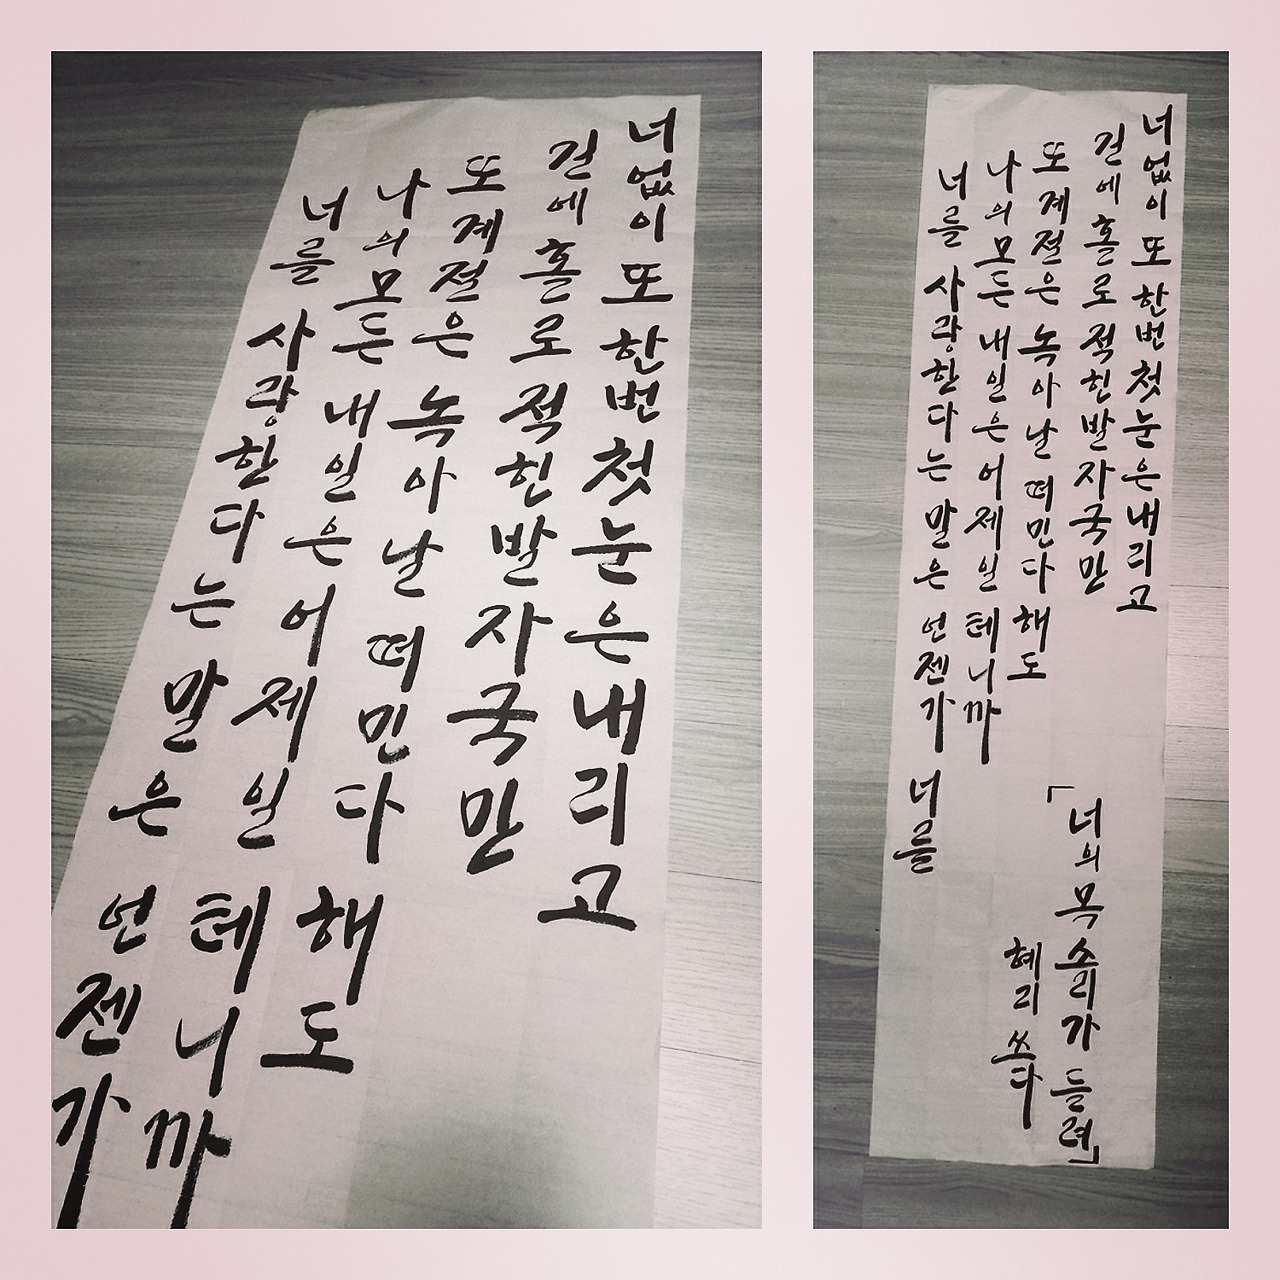 너 없이 또 한번 첫눈은 내리고
길에 홀로 적힌 발자국만
또 계절은 녹아 날 떠민다 해도
나의 모든 내일은 어제일 테니까
너를 사랑한다는 말은 언젠가
너 없이 또 한번 첫눈은 내리고
길에 홀로 적힌 발자국만
또 계절은 녹아 날 떠민다 해도
나의 모든 내일은 어제일 테니까
너를 사랑한다는 말은 언젠가 너를
「너의 목소리가 들려」
혜리 쓰다